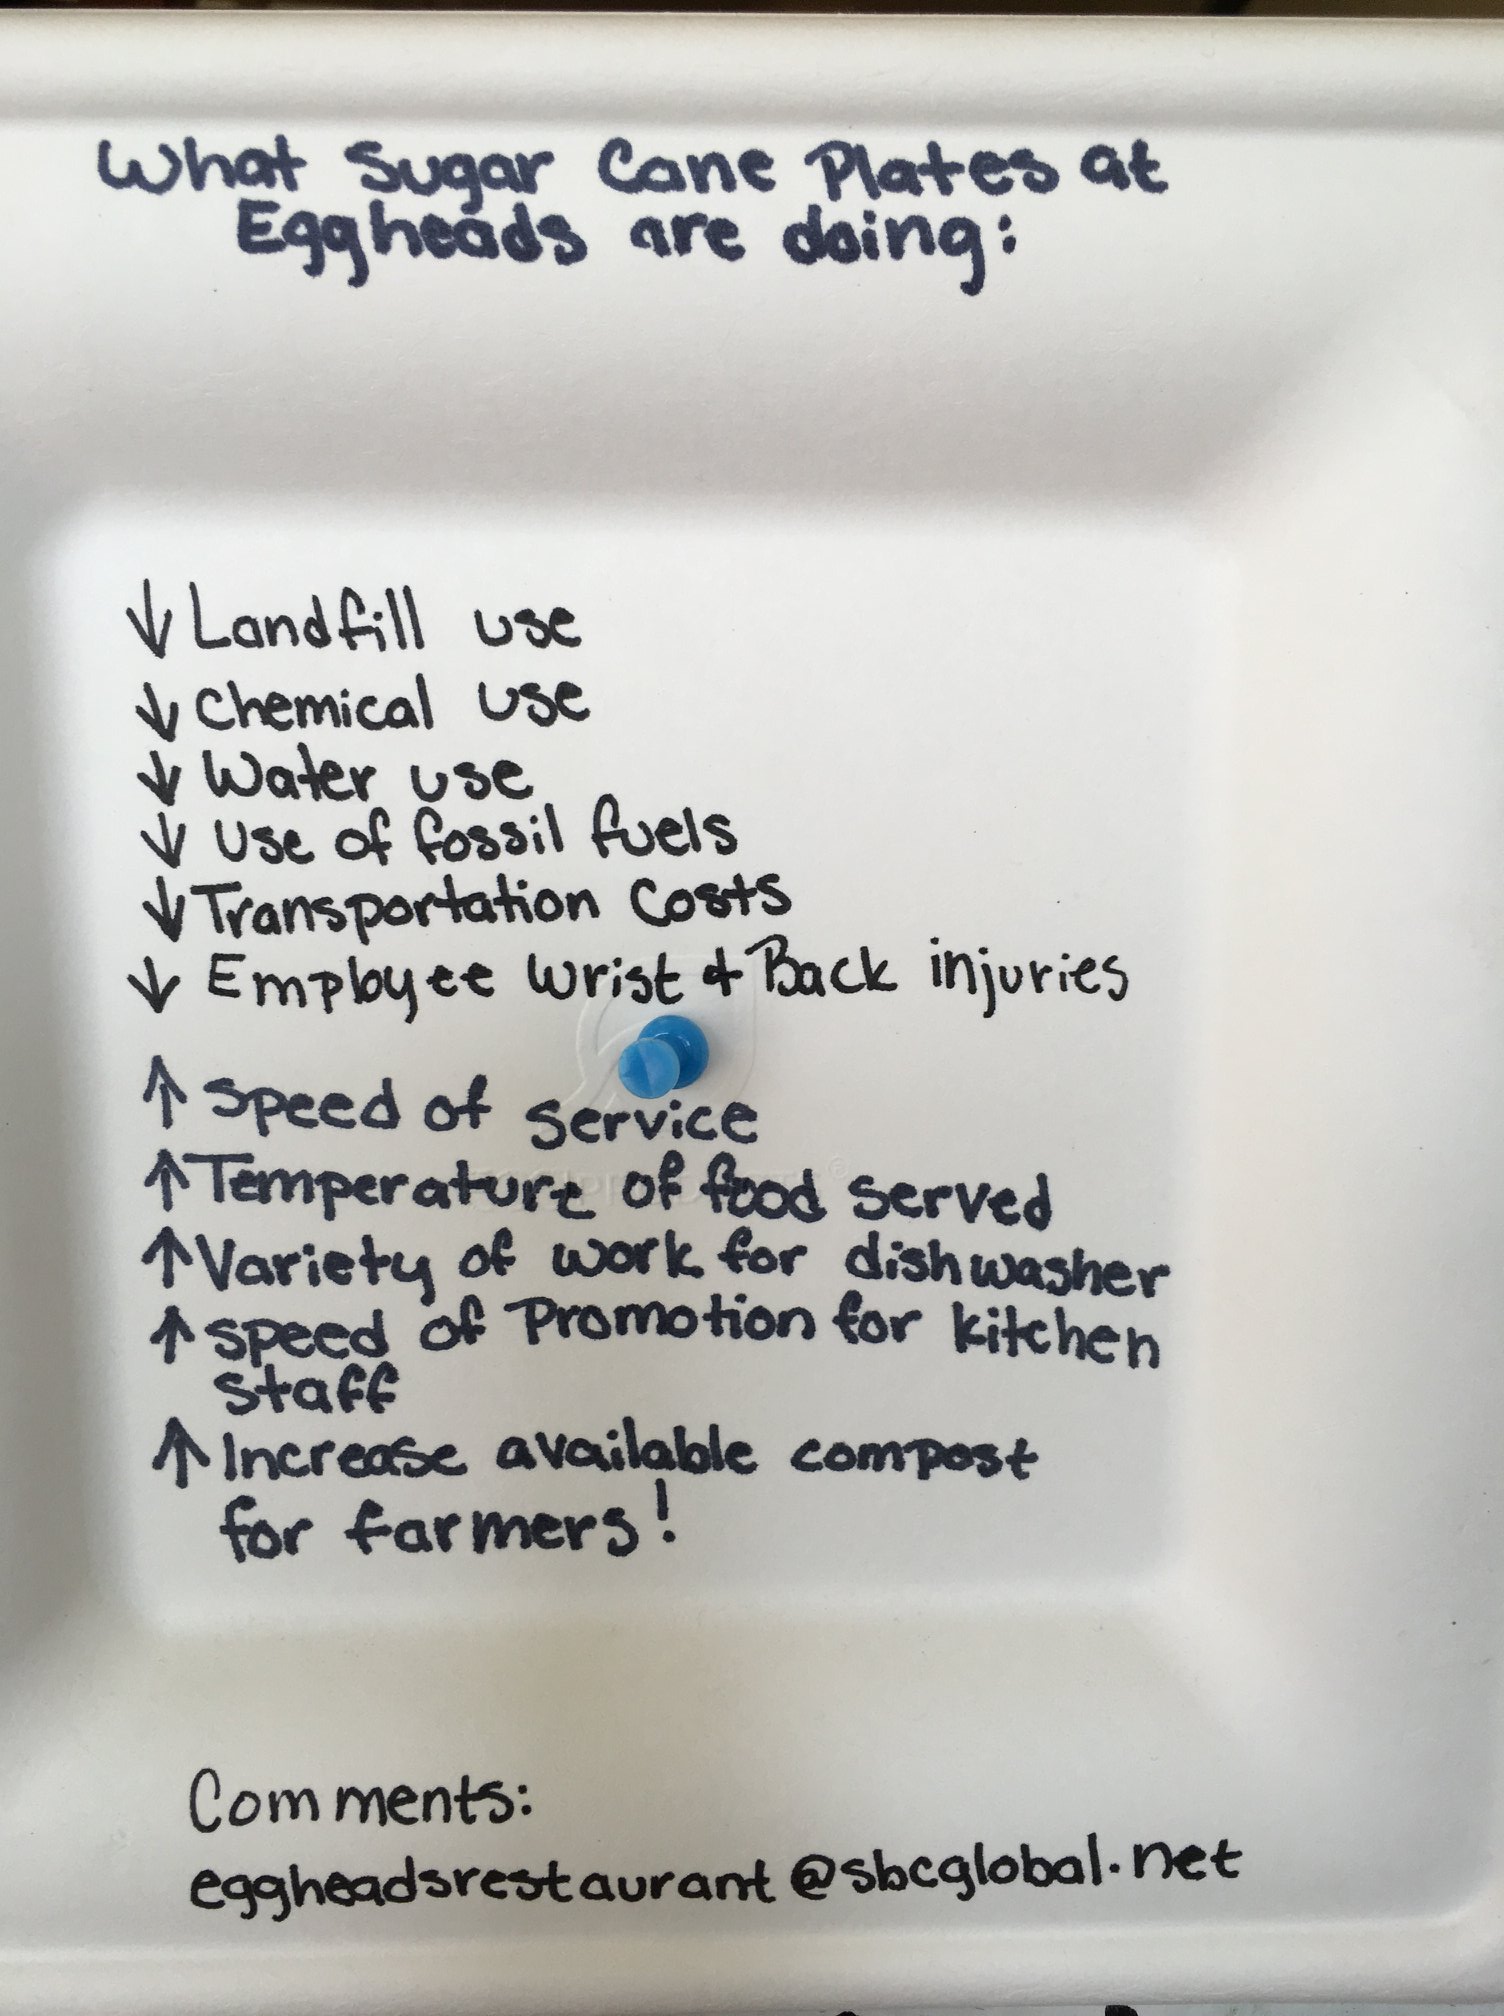 What Sugar Cane Plates at
Eggheads are doing:
↓ Landfill use
↓ Chemical use
↓ Water use
↓ Use of fossil fuels
↓ Transportation Costs
↓ Employee Wrist & Back injuries
↑ Speed of service
↑ Temperature of food served
↑ Variety of work for dishwasher
↑ Speed of Promotion for kitchen
staff
↑ Increase available compost
for farmers!
Comments:
eggheadsrestaurant@sbcglobal.net